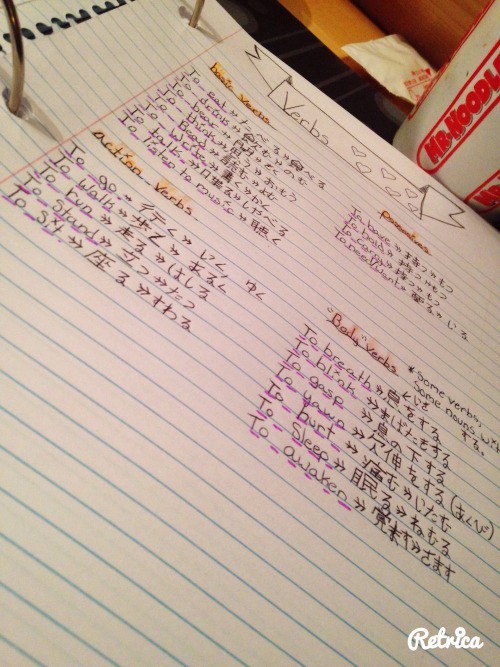 Verbs
basic verbs
To eat » たべる » 食べる
To drink » 飲む » のむ
To hear » 聞く » きく
To think » 思う » おもう
To read » 読む » よむ
To write » 書く » かく
To talk » しゃべる
to music » 聴く
action verbs
To go » 行く » いく ゆく
To walk » 歩く » あるく
To run » 走る » はしる
To stand » 立つ » たつ
To sit » 座る » すわる
To have » 持つ » もつ
To hold » 持つ » もつ
To carry » 持つ » もつ
To need/want »
"Body" verbs
*Some verbs,
Some nouns with
する。
To breath » 息をする
To blink » まばたきする
To gasp » 息の下する
To yawn » 欠伸をする (あくび)
To hurt » 痛む » いたむ
To sleep » 眠る » ねむる
To awaken » 覚ます » さます
MR. NOODLES
Retrica